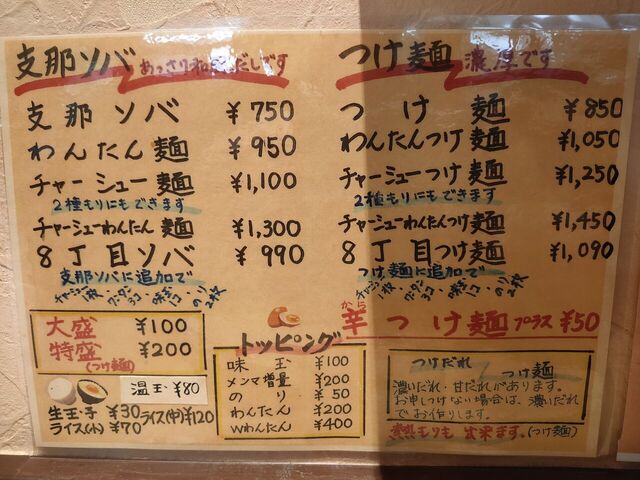 支那ソバ あっさり和風だしです
支那ソバ ¥750
わんたん麺 ¥950
チャーシュー麺 ¥1,100
2種もりにもできます
チャーシューわんたん麺 ¥1,300
8丁目ソバ ¥990
支那ソバに追加で
チャーシュー1枚、ワンタン3コ、味玉1コ、のり2枚
大盛 ¥100
特盛 ¥200
(つけ麺)
温玉 ¥80
生玉子 ¥30 ライス(中)¥120
ライス(小) ¥70
つけ麺 濃厚です
つけ麺 ¥850
わんたんつけ麺 ¥1,050
チャーシューつけ麺 ¥1,250
2種もりにもできます
チャーシューわんたんつけ麺 ¥1,450
8丁目つけ麺 ¥1,090
つけ麺に追加で
チャーシュー1枚、ワンタン3コ、味玉1コ、のり2枚
から
辛つけ麺 プラス ¥50
トッピング
味玉 ¥100
メンマ増量 ¥200
のり ¥50
わんたん ¥200
Wわんたん ¥400
つけだれ つけ麺
濃いだれ・甘だれがあります。
お申しつけない場合は、濃いだれ
でお作りします。
熱もりも出来ます。(つけ麺)